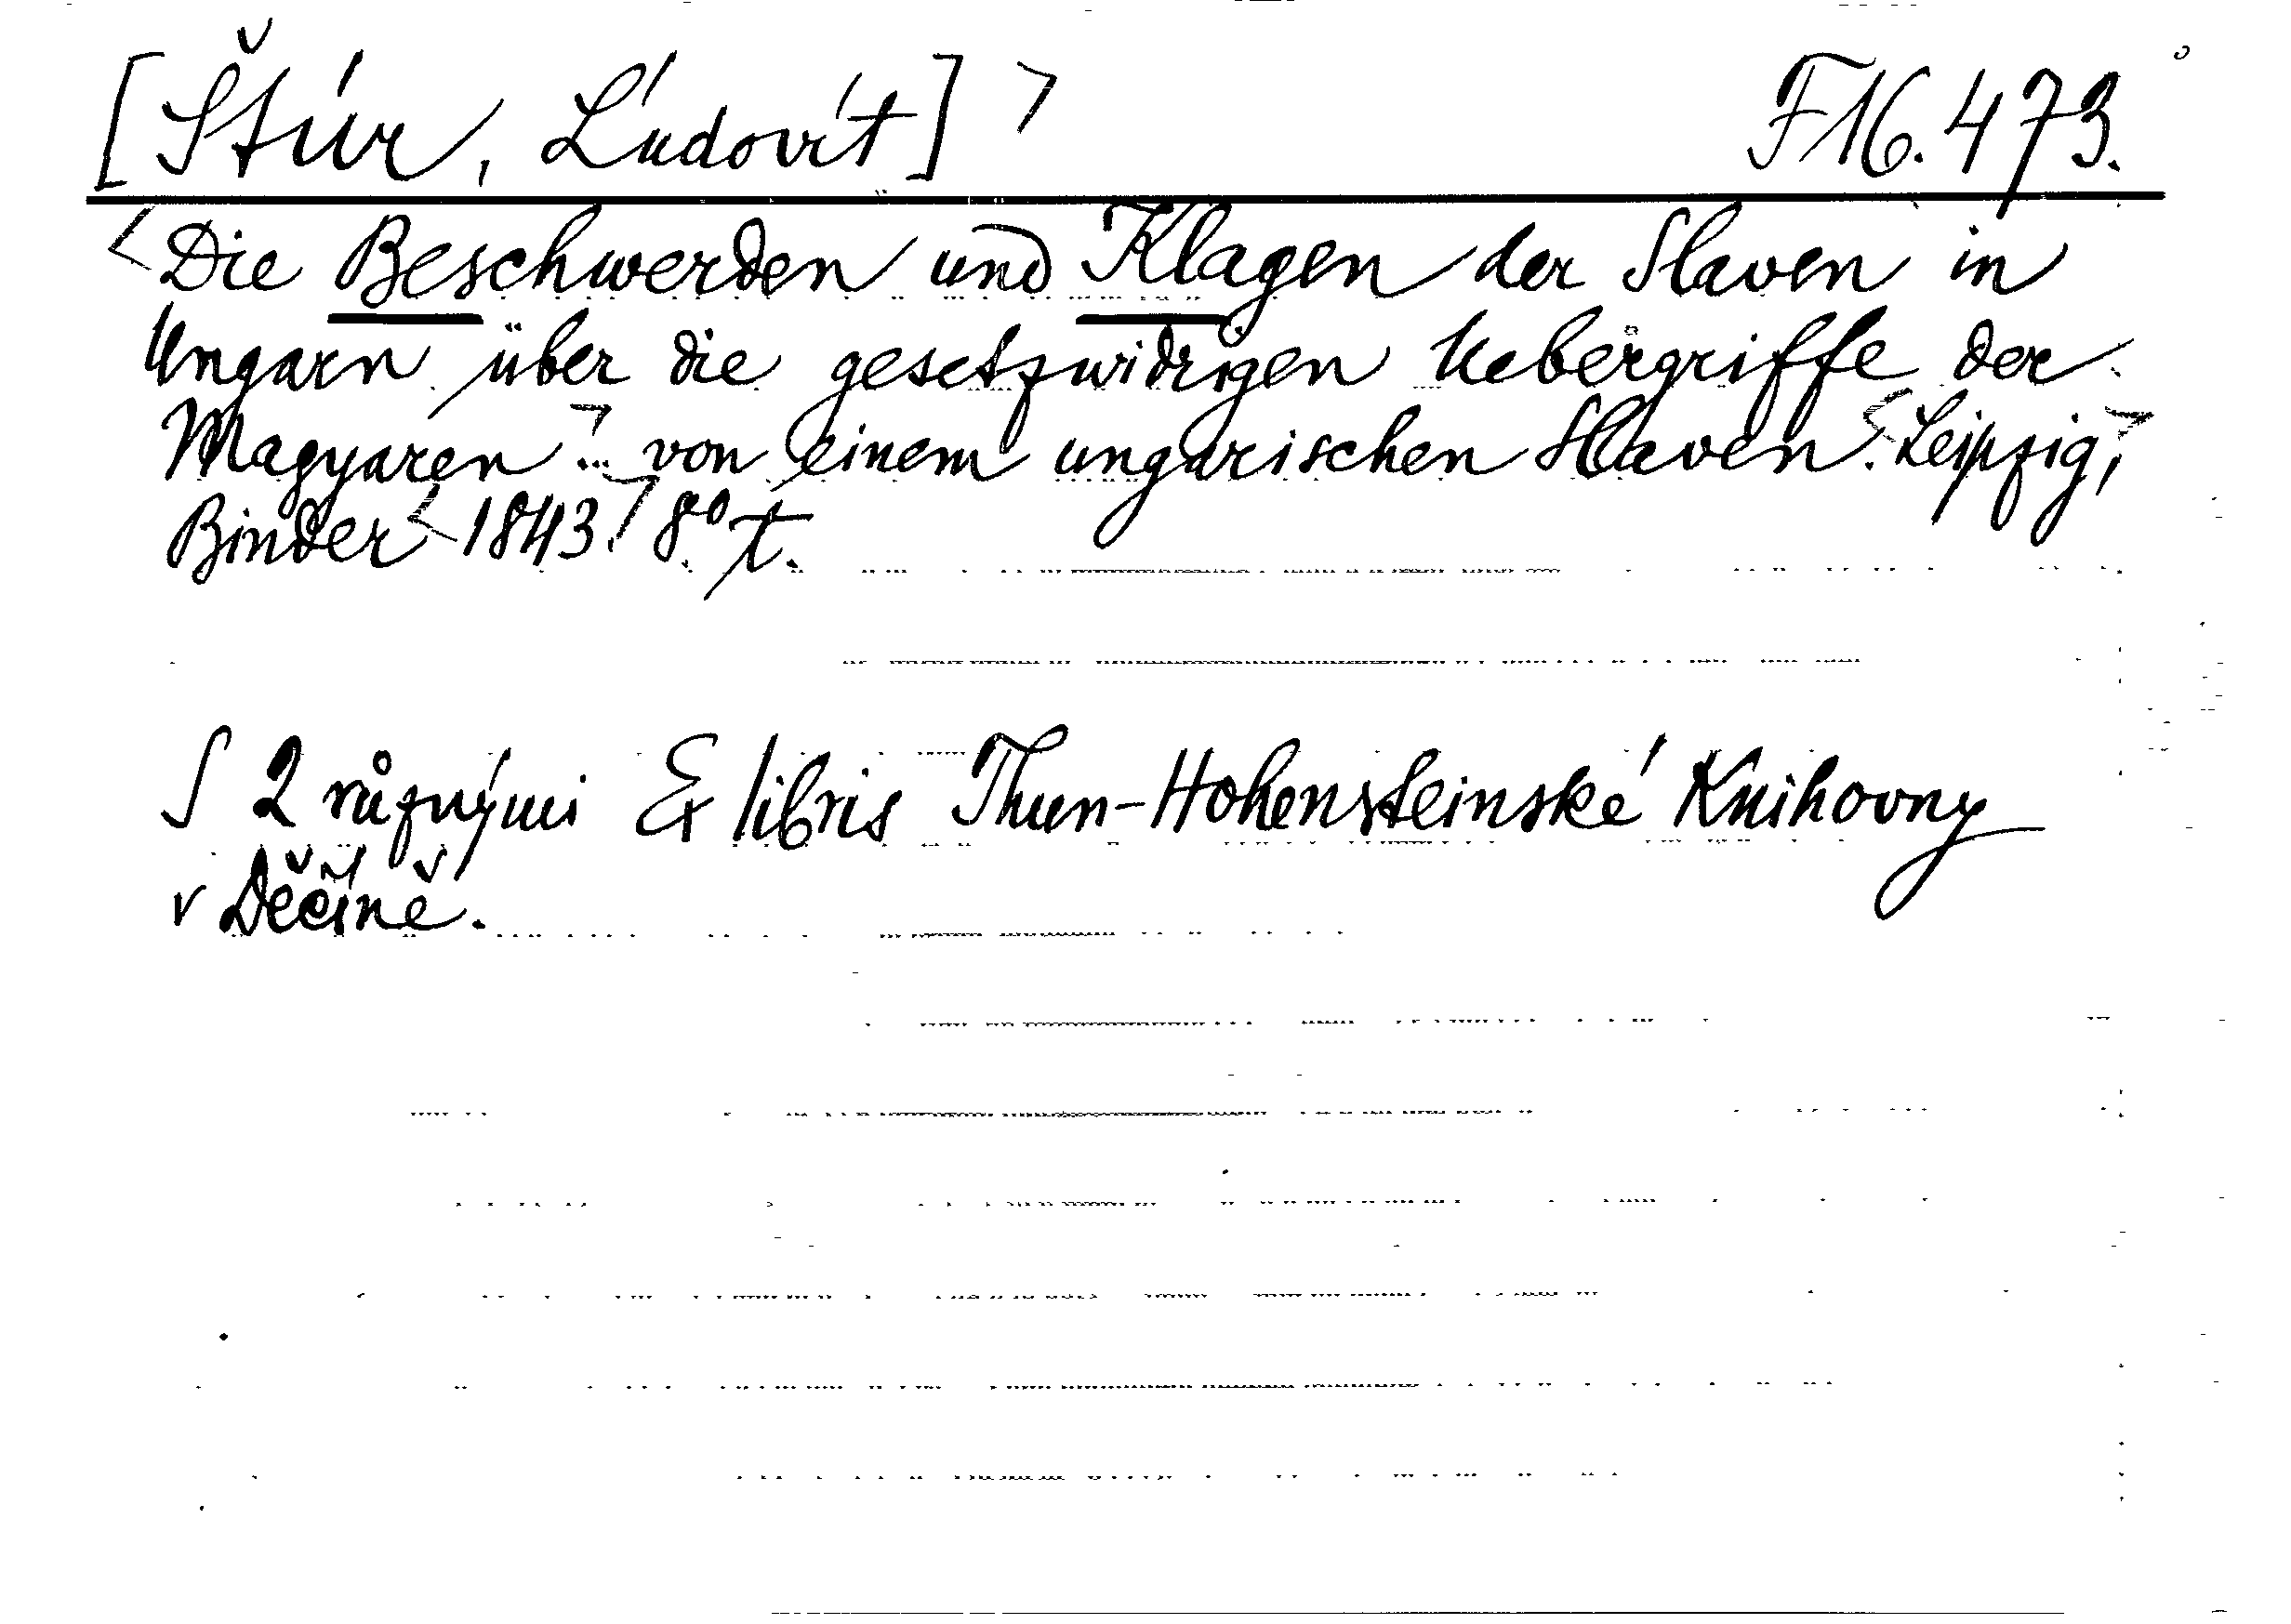 [Štúr, Ľudovít] > F 16.473.
<Die Beschwerden und Klagen der Slaven in
Ungarn über die gesetzwidrigen Uebergriffe der
Magyaren> ... von einem ungarischen Slaven. <Leipzig,>
Binder <1843.> 8.° t.
S 2 různými Ex libris Thun-Hohensteinské Knihovny
v Děčíně.